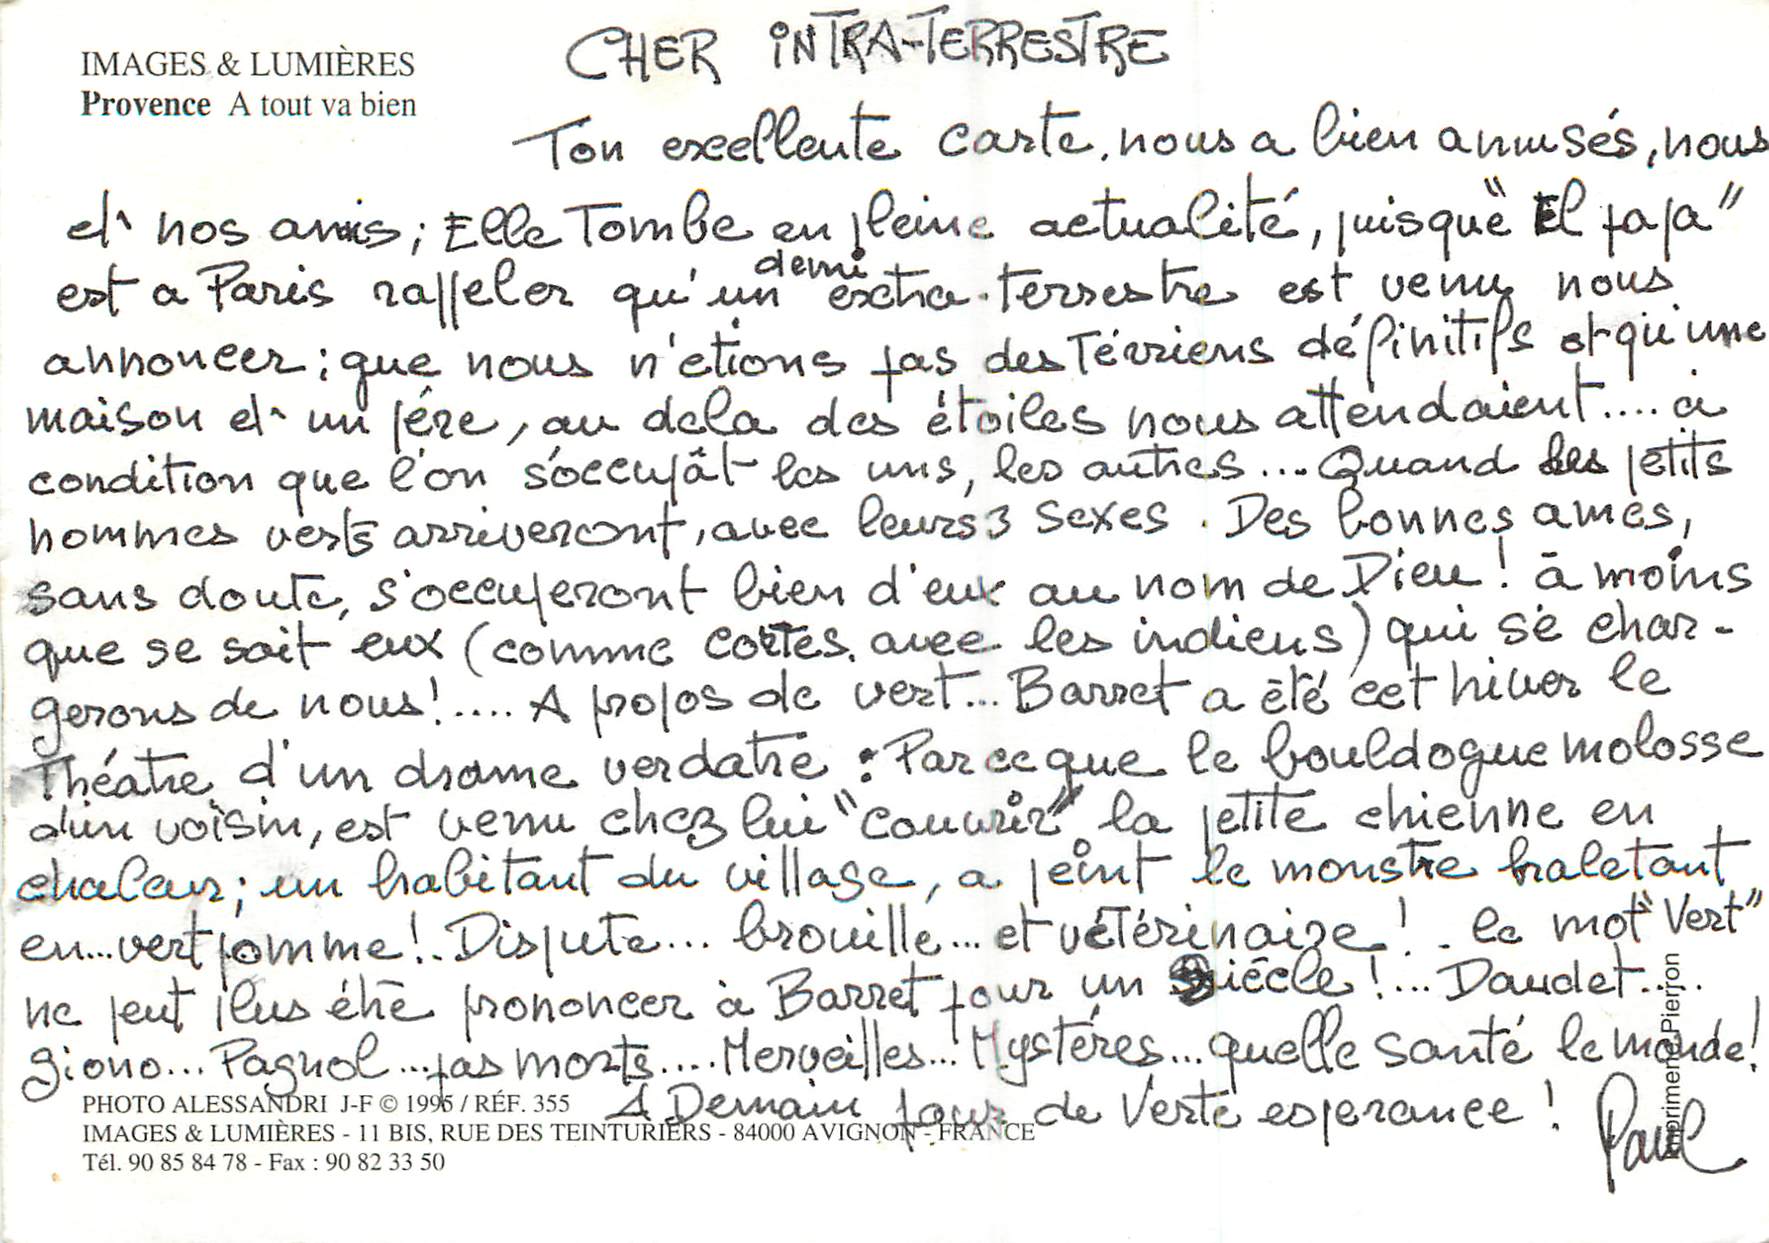 IMAGES & LUMIÈRES
Provence A tout va bien
CHER INTRA-TERRESTRE
Ton excellente carte, nous a bien amusés, nous
et nos amis; Elle Tombe en pleine actualité, puisque "El papa"
est a Paris rappeler qu'un demi extra-terrestre est venu nous
annoncer; que nous n'étions pas des Térriens définitifs et qu'une
maison et un pére, au dela des étoiles nous attendaient.... à
condition que l'on s'occupât les uns, les autres... Quand les petits
hommes verts arriveront, avec leurs 3 sexes. Des bonnes ames,
sans doute, s'occuperont bien d'eux au nom de Dieu! à moins
que se soit eux (comme cortes, avec les indiens) qui se char-
gerons de nous!.... A propos de vert... Barret a été cet hiver le
Théatre d'un drame verdatre : Parceque le bouldogue molosse
d'un voisin, est venu chez lui "couvrir" la petite chienne en
chaleur; un habitant du village, a peint le monstre haletant
en...vert pomme!. Dispute... brouille... et vétérinaire! - le mot "Vert"
ne peut plus étre prononcer à Barret pour un siécle!... Daudet....
giono... Pagnol...pas morts.... Merveilles... Mystéres... quelle santé le monde!
A Demain pour de Verte esperance!
Paul
PHOTO ALESSANDRI J-F © 1995 / RÉF. 355
IMAGES & LUMIÈRES - 11 BIS, RUE DES TEINTURIERS - 84000 AVIGNON - FRANCE
Tél. 90 85 84 78 - Fax : 90 82 33 50
Imprimerie Pierron